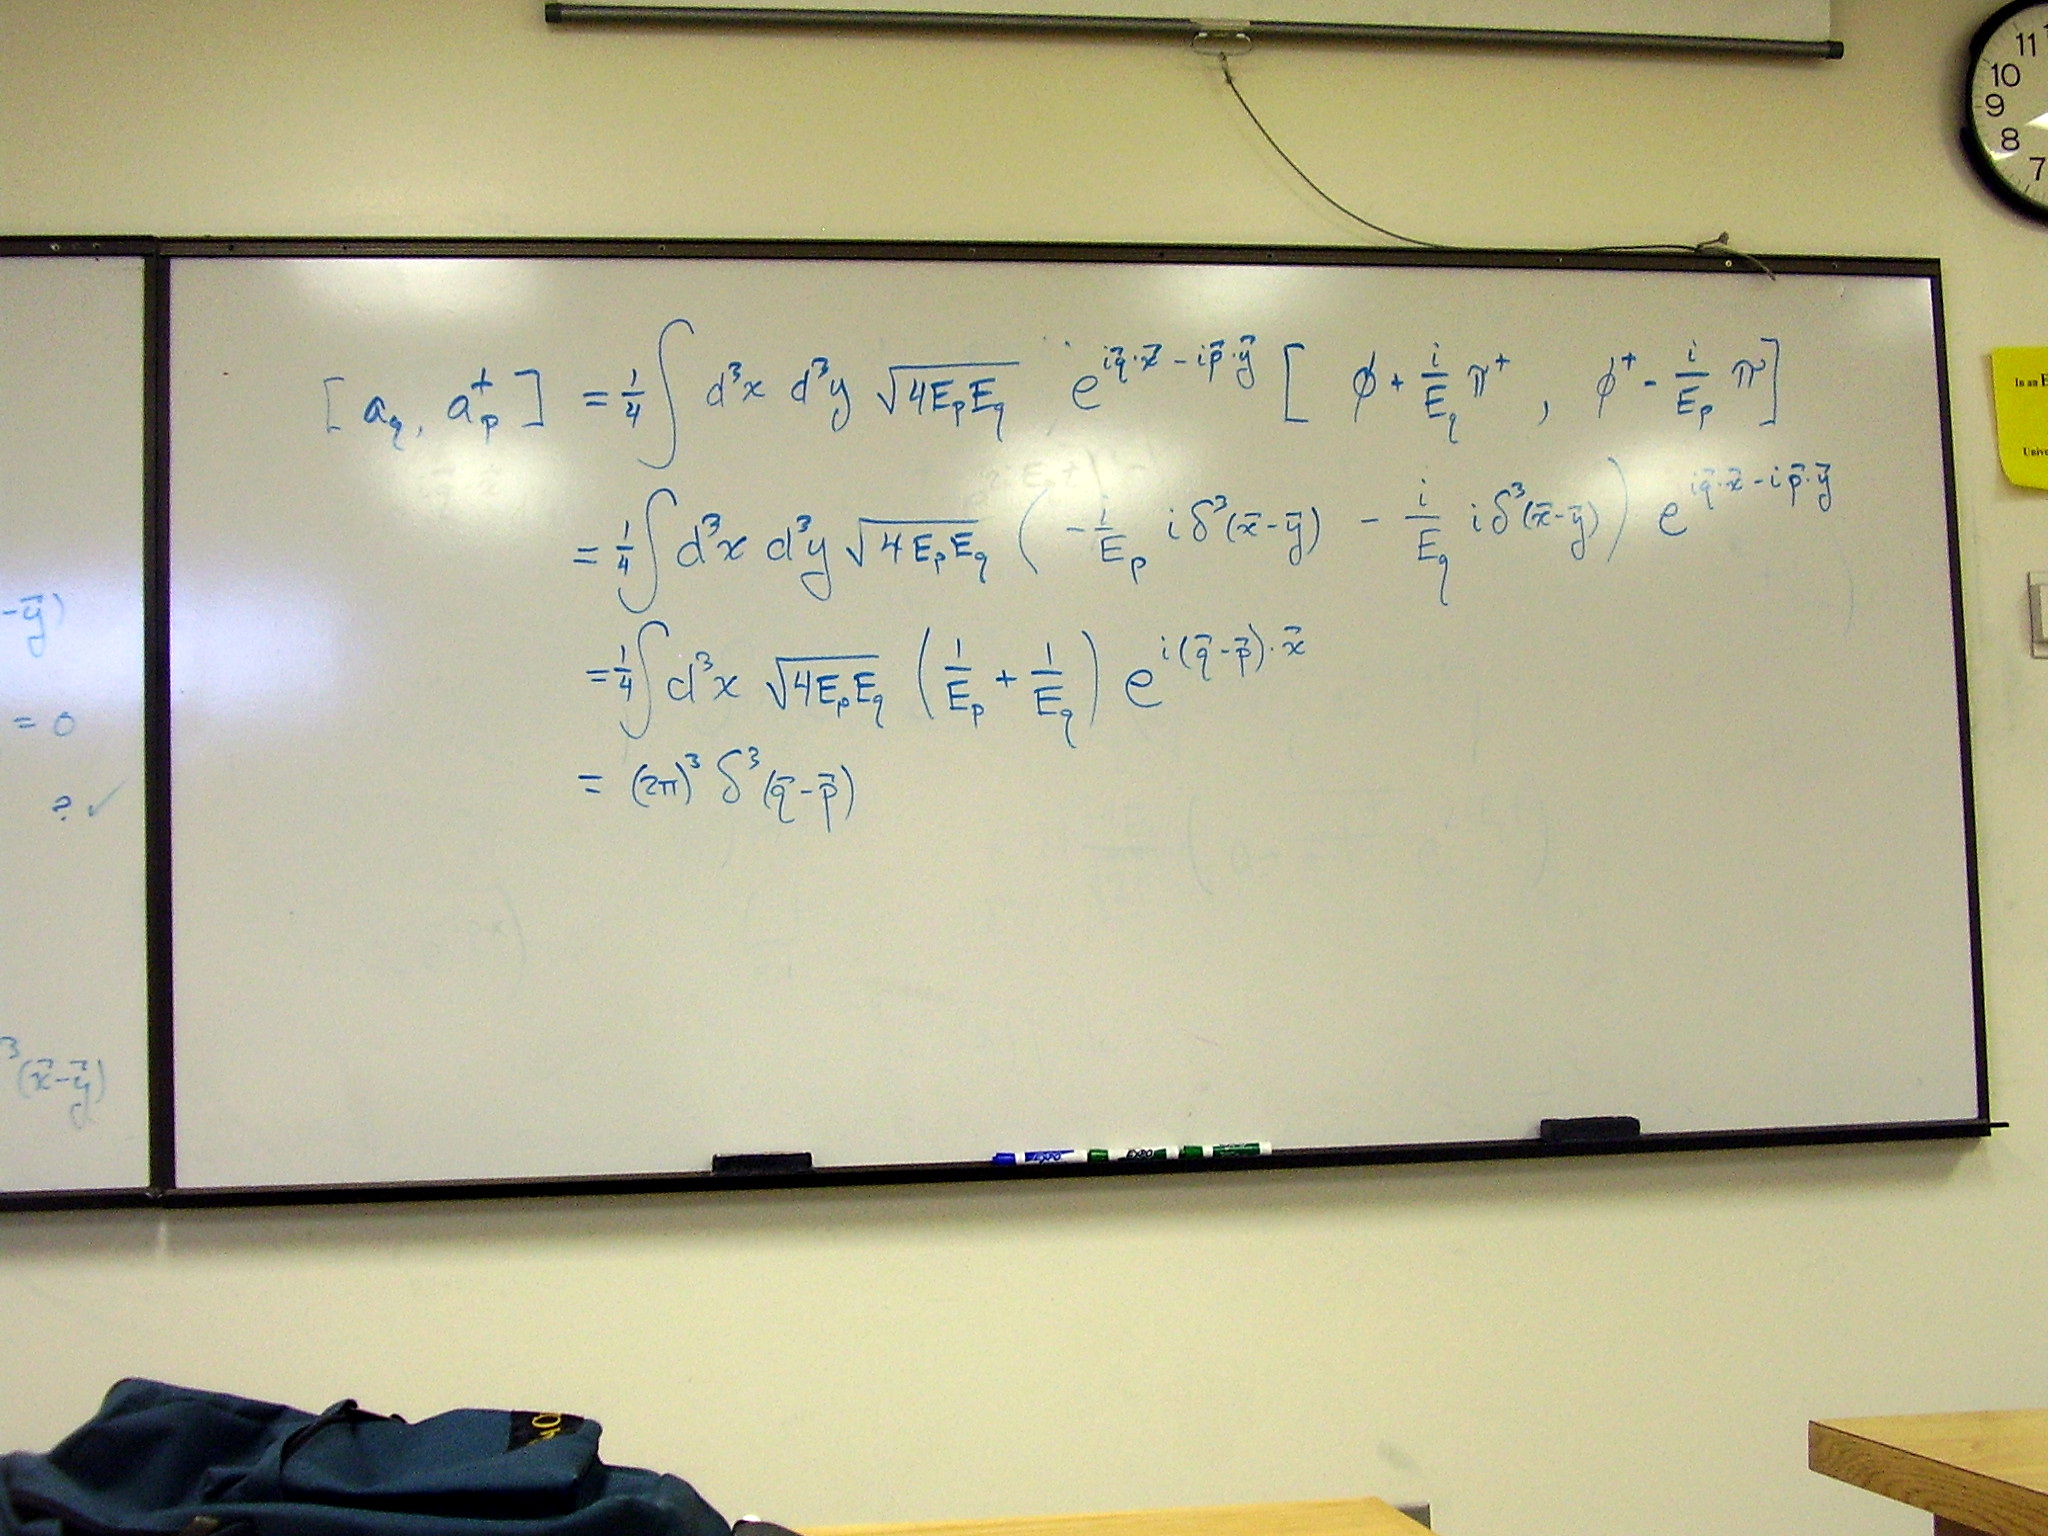 [a_q, a_p^†] = 1/4 ∫ d³x d³y √(4E_pE_q) e^{iq⃗·x⃗ - ip⃗·y⃗} [ϕ + i/E_q π⁺, ϕ⁺ - i/E_p π]
= 1/4 ∫ d³x d³y √(4E_pE_q) (-i/E_p iδ³(x⃗-y⃗) - i/E_q iδ³(x⃗-y⃗)) e^{iq⃗·x⃗ - ip⃗·y⃗}
= 1/4 ∫ d³x √(4E_pE_q) (1/E_p + 1/E_q) e^{i(q⃗-p⃗)·x⃗}
= (2π)³ δ³(q⃗-p⃗)
-y⃗)
= 0
? ✓
³(x⃗-y⃗)
11
10
9
8
7
In an E
Unive
EXPO
EXPO